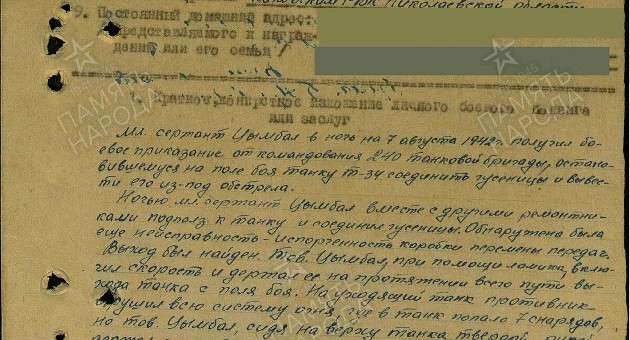 Николаевской области
9. Постоянный домашний адрес:
представляемого к награж-
дению или его семьи
1. Краткое, конкретное изложение личного боевого подвига
или заслуг
Мл. сержант Цымбал в ночь на 7 августа 1942 г. получил бо-
евое приказание от командования 240 танковой бригады, остано-
вившемуся на поле боя танку Т-34 соединить гусеницы и вывес-
ти его из-под обстрела.
Ночью мл. сержант Цымбал вместе с другими ремонтни-
ками подполз к танку и соединил гусеницы. Обнаружена была
еще неисправность - испорченность коробки перемены передач.
Выход был найден. Тов. Цымбал, при помощи ломика, вклю-
чил скорость и держал ее на протяжении всего пути вы-
хода танка с поля боя. На уходящий танк противник
обрушил всю систему огня, где в танк попало 7 снарядов,
но тов. Цымбал, сидя на верху танка, твердой рукой
ПАМЯТЬ
НАРОДА
ПАМЯТЬ
НАРОДА